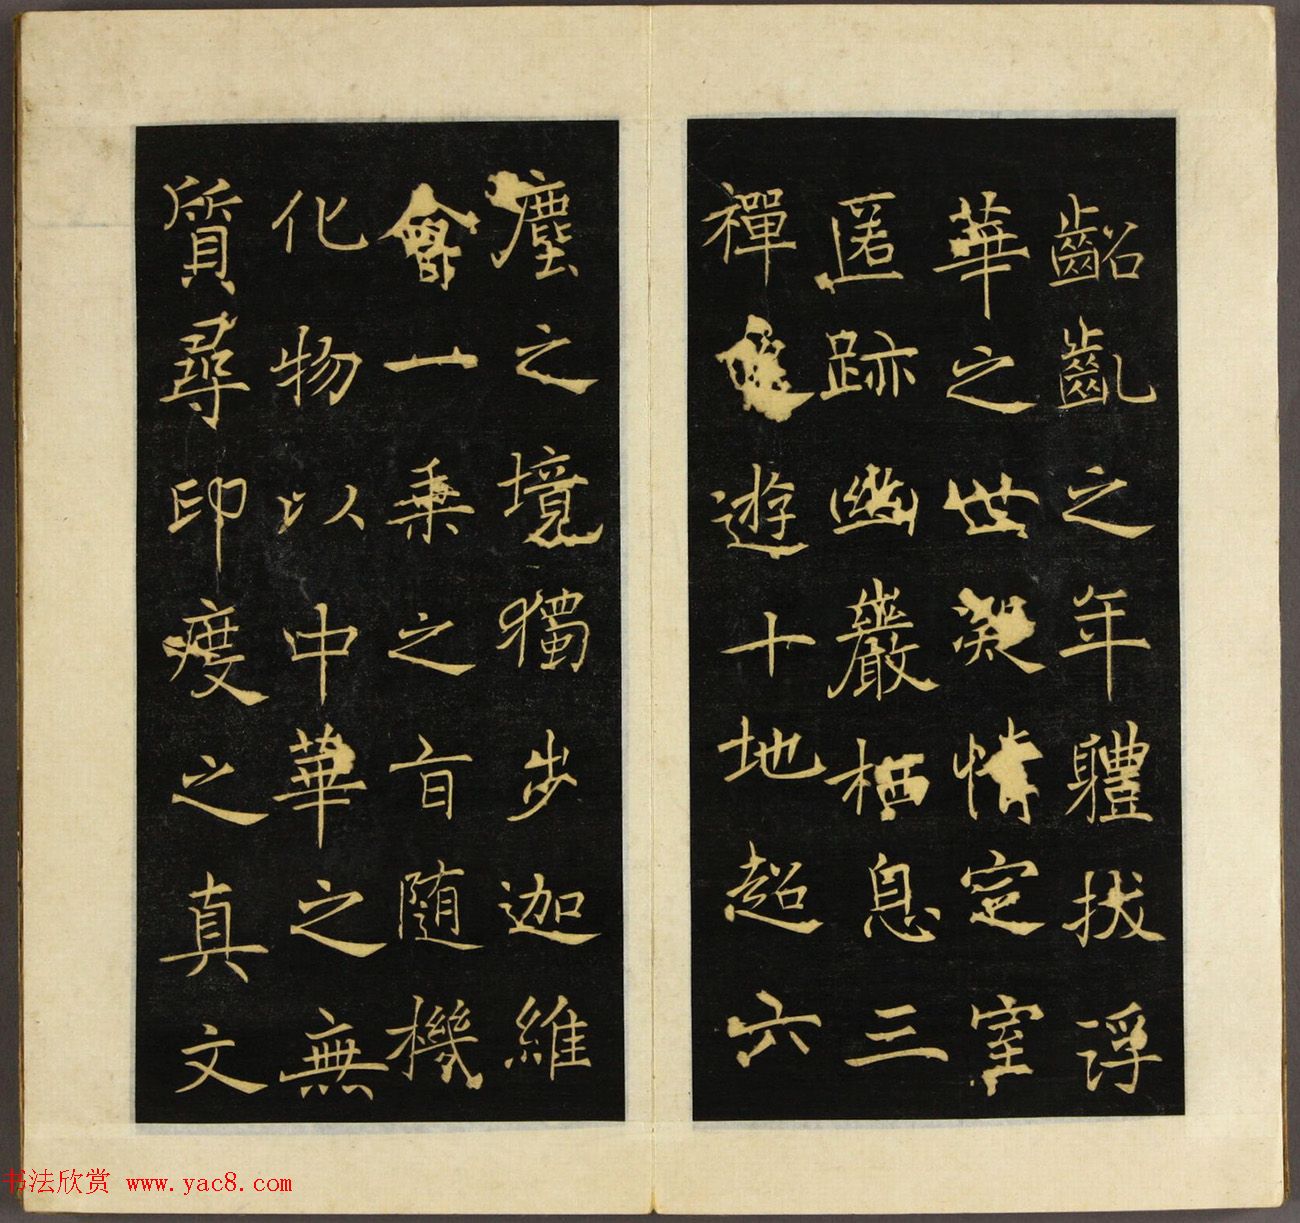 齠齓之年體拔浮
華之世凝情定室
匿跡幽巖栖息三
禪巡遊十地超六
塵之境獨步迦維
會一乘之旨隨機
化物以中華之無
質尋印度之真文
书法欣赏 www.yac8.com